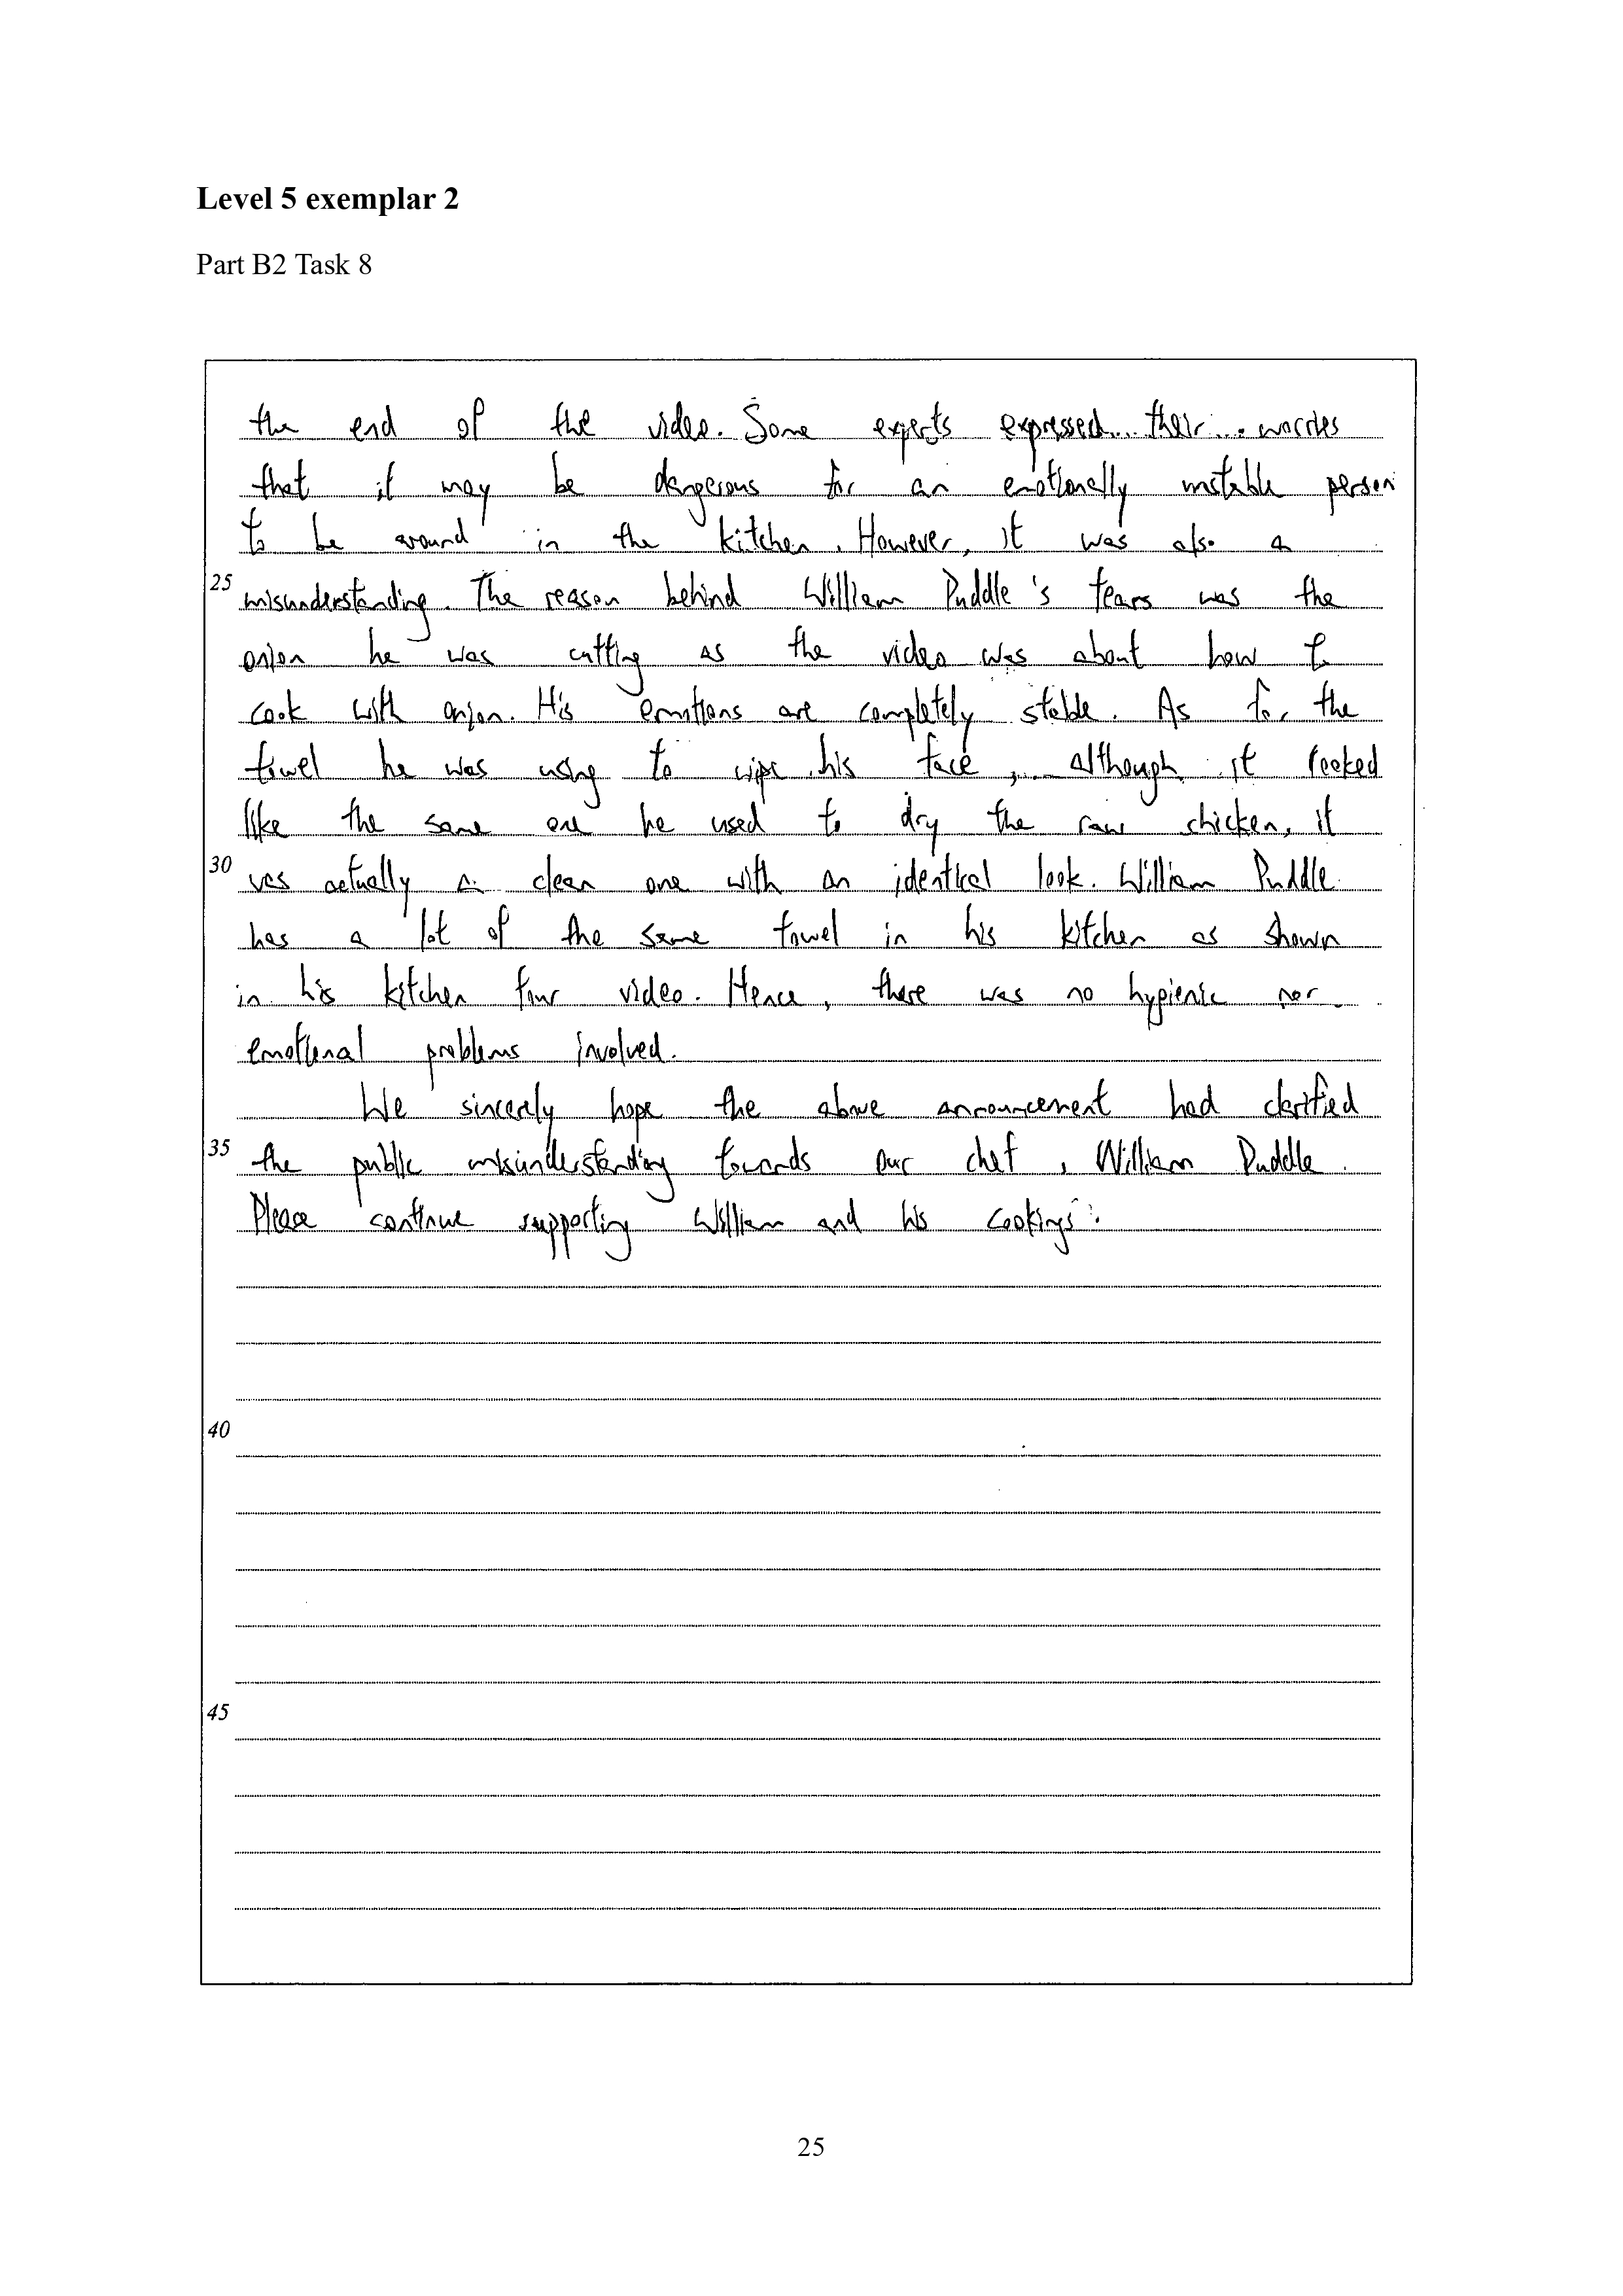 Level 5 exemplar 2
Part B2 Task 8
the end of the video. Some experts expressed their worries
that it may be dangerous for an emotionally unstable person
to be around in the kitchen. However, it was also a
25 misunderstanding. The reason behind William Puddle's tears was the
onion he was cutting as the video was about how to
cook with onion. His emotions are completely stable. As for the
towel he was using to wipe his face, although it looked
like the same one he used to dry the raw chicken, it
30 was actually a clean one with an identical look. William Puddle
has a lot of the same towel in his kitchen as shown
in his kitchen tour video. Hence, there was no hygienic nor
emotional problems involved.
We sincerely hope the above announcement had clarified
35 the public misunderstanding towards our chef, William Puddle.
Please continue supporting William and his cookings.
40
45
25